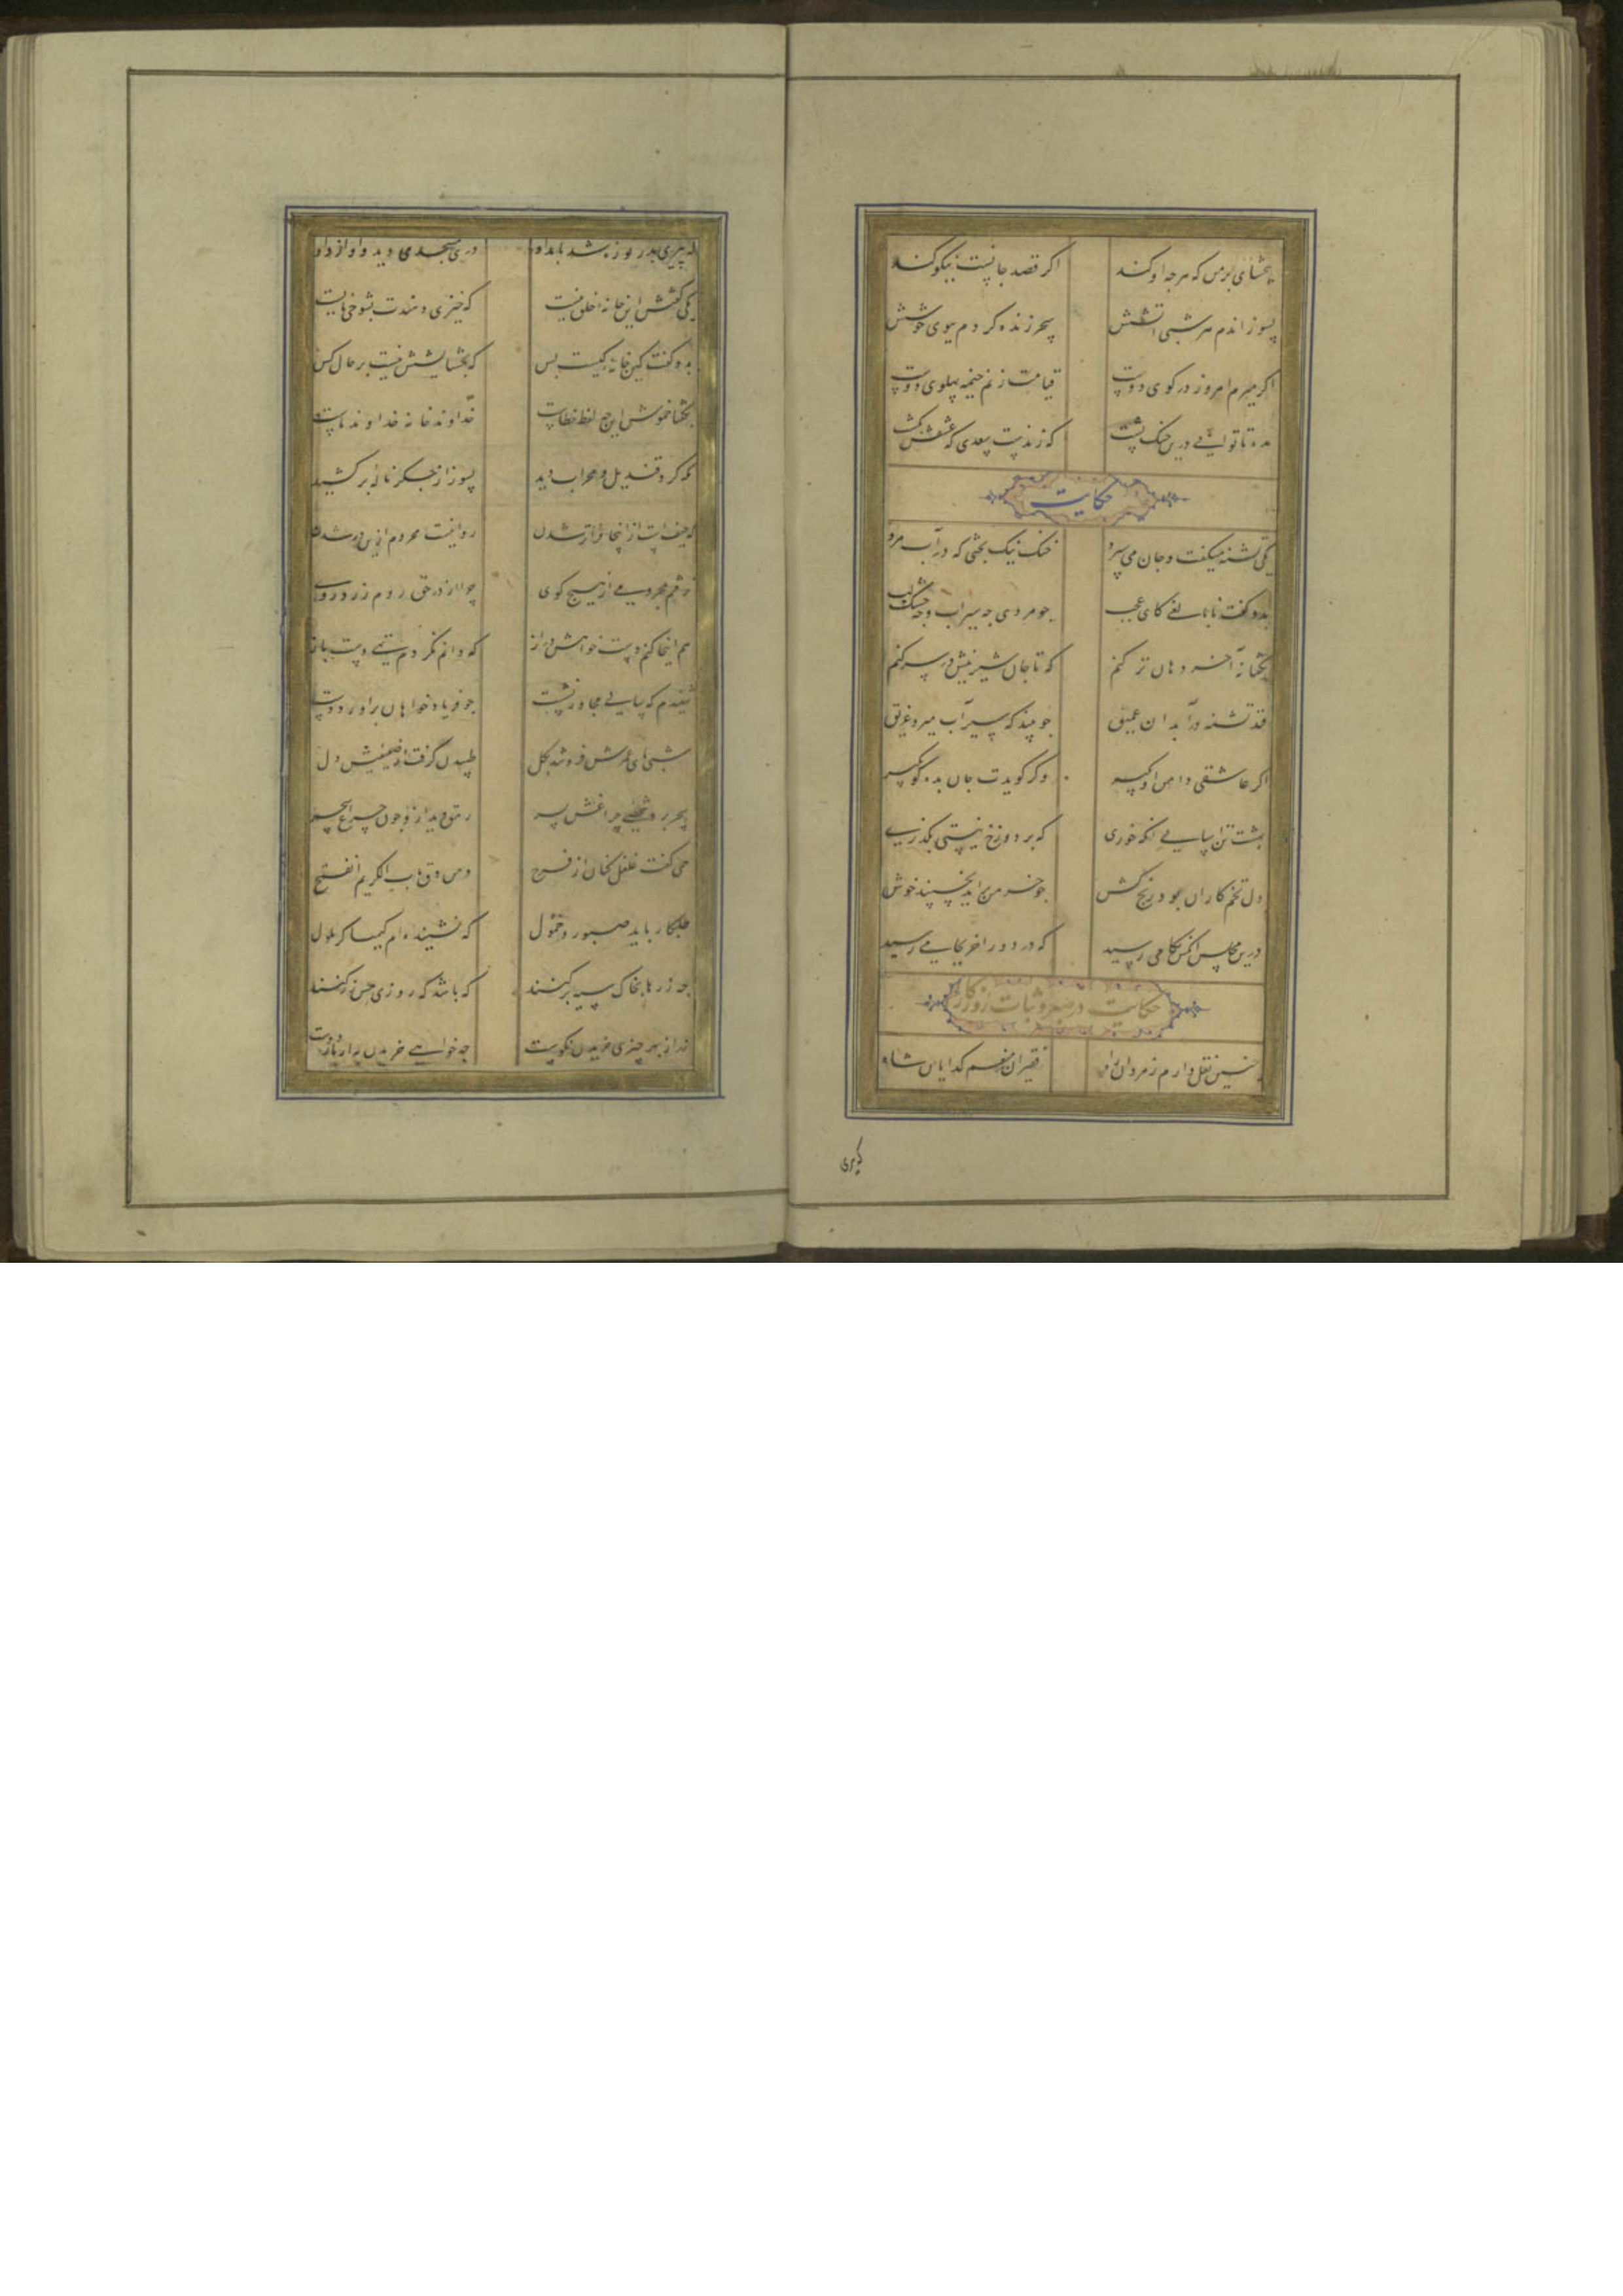 ببخشای بر من که هرچه او کند اگر قصد جانست نیکو کند
بسوزاندم هر شبی آتشش سحر زنده کردم ببوی خوشش
اگر میرم امروز در کوی دوست قیامت زنم خیمه پهلوی دوست
مده تا توانی درین جنک پشت که زندست سعدی که عشقش بکشت
حکایت
یکی تشنه میکفت و جان می سپرد خنک نیک بختی که در آب مرد
بدو کفت نابالغی کای عجب جو مردی جه سیراب و جه خشک لب
بکفتا نه آخر دهان تر کنم که تا جان شیرینش در سر کنم
فتد تشنه در آبدان عمیق جو میند که سیراب میرد غریق
اگر عاشقی دامن او بکیر وگر کویدت جان بده کو بکیر
بهشت تن آسایی آنکه خوری که بر دوزخ نیستی بکذری
دل تخم کاران بود رنج کش جو خرمن برآید بخسپند خوش
درین مجلس آنکس بکامی رسید که در دور آخر بجامی رسید
حکایت در صبر و ثبات روزکار
چنین نقل دارم ز مردان راه فقیران منعم کدایان شاه
که پیری
که پیری بدریوزه شد بامداد در مسجدی دید و آواز داد
یکی کفتش این خانه خلق نیست که چیزی دهندت بشوخی مایست
بدو کفت کین خانه کیست پس که بخشایشش نیست بر حال کس
بکفتا خموش این چه لفظ خطاست خداوند خانه خداوند ماست
نکه کرد و قندیل و محراب دید بسوز از جکر ناله برکشید
که حیفست از اینجا فراتر شدن روا نیست محروم ازین در شدن
نرفتم بمحرومی از هیچ کوی چرا از در حق روم زرد روی
هم اینجا کنم دست خواهش دراز که دانم نکردم تهی دست باز
شنیدم که سالی مجاور نشست جو فریاد خواهان برآورد دست
شبی پای عمرش فرو شد بکل طپیدن گرفت از ضعیفیش دل
سحر برد شخصی چراغش بسر رمق دید ازو جون چراغ سحر
همی کفت غلغل کنان از فرح و من دق باب الکریم انفتح
طلبکار باید صبور و حمول که نشنیده ام کیمیاکر ملول
جه زرها بخاک سیه برکنند که باشد که روزی مسی زر کنند
زر از بهر چیزی خریدن نکوست چه خواهی خریدن به از یار دوست